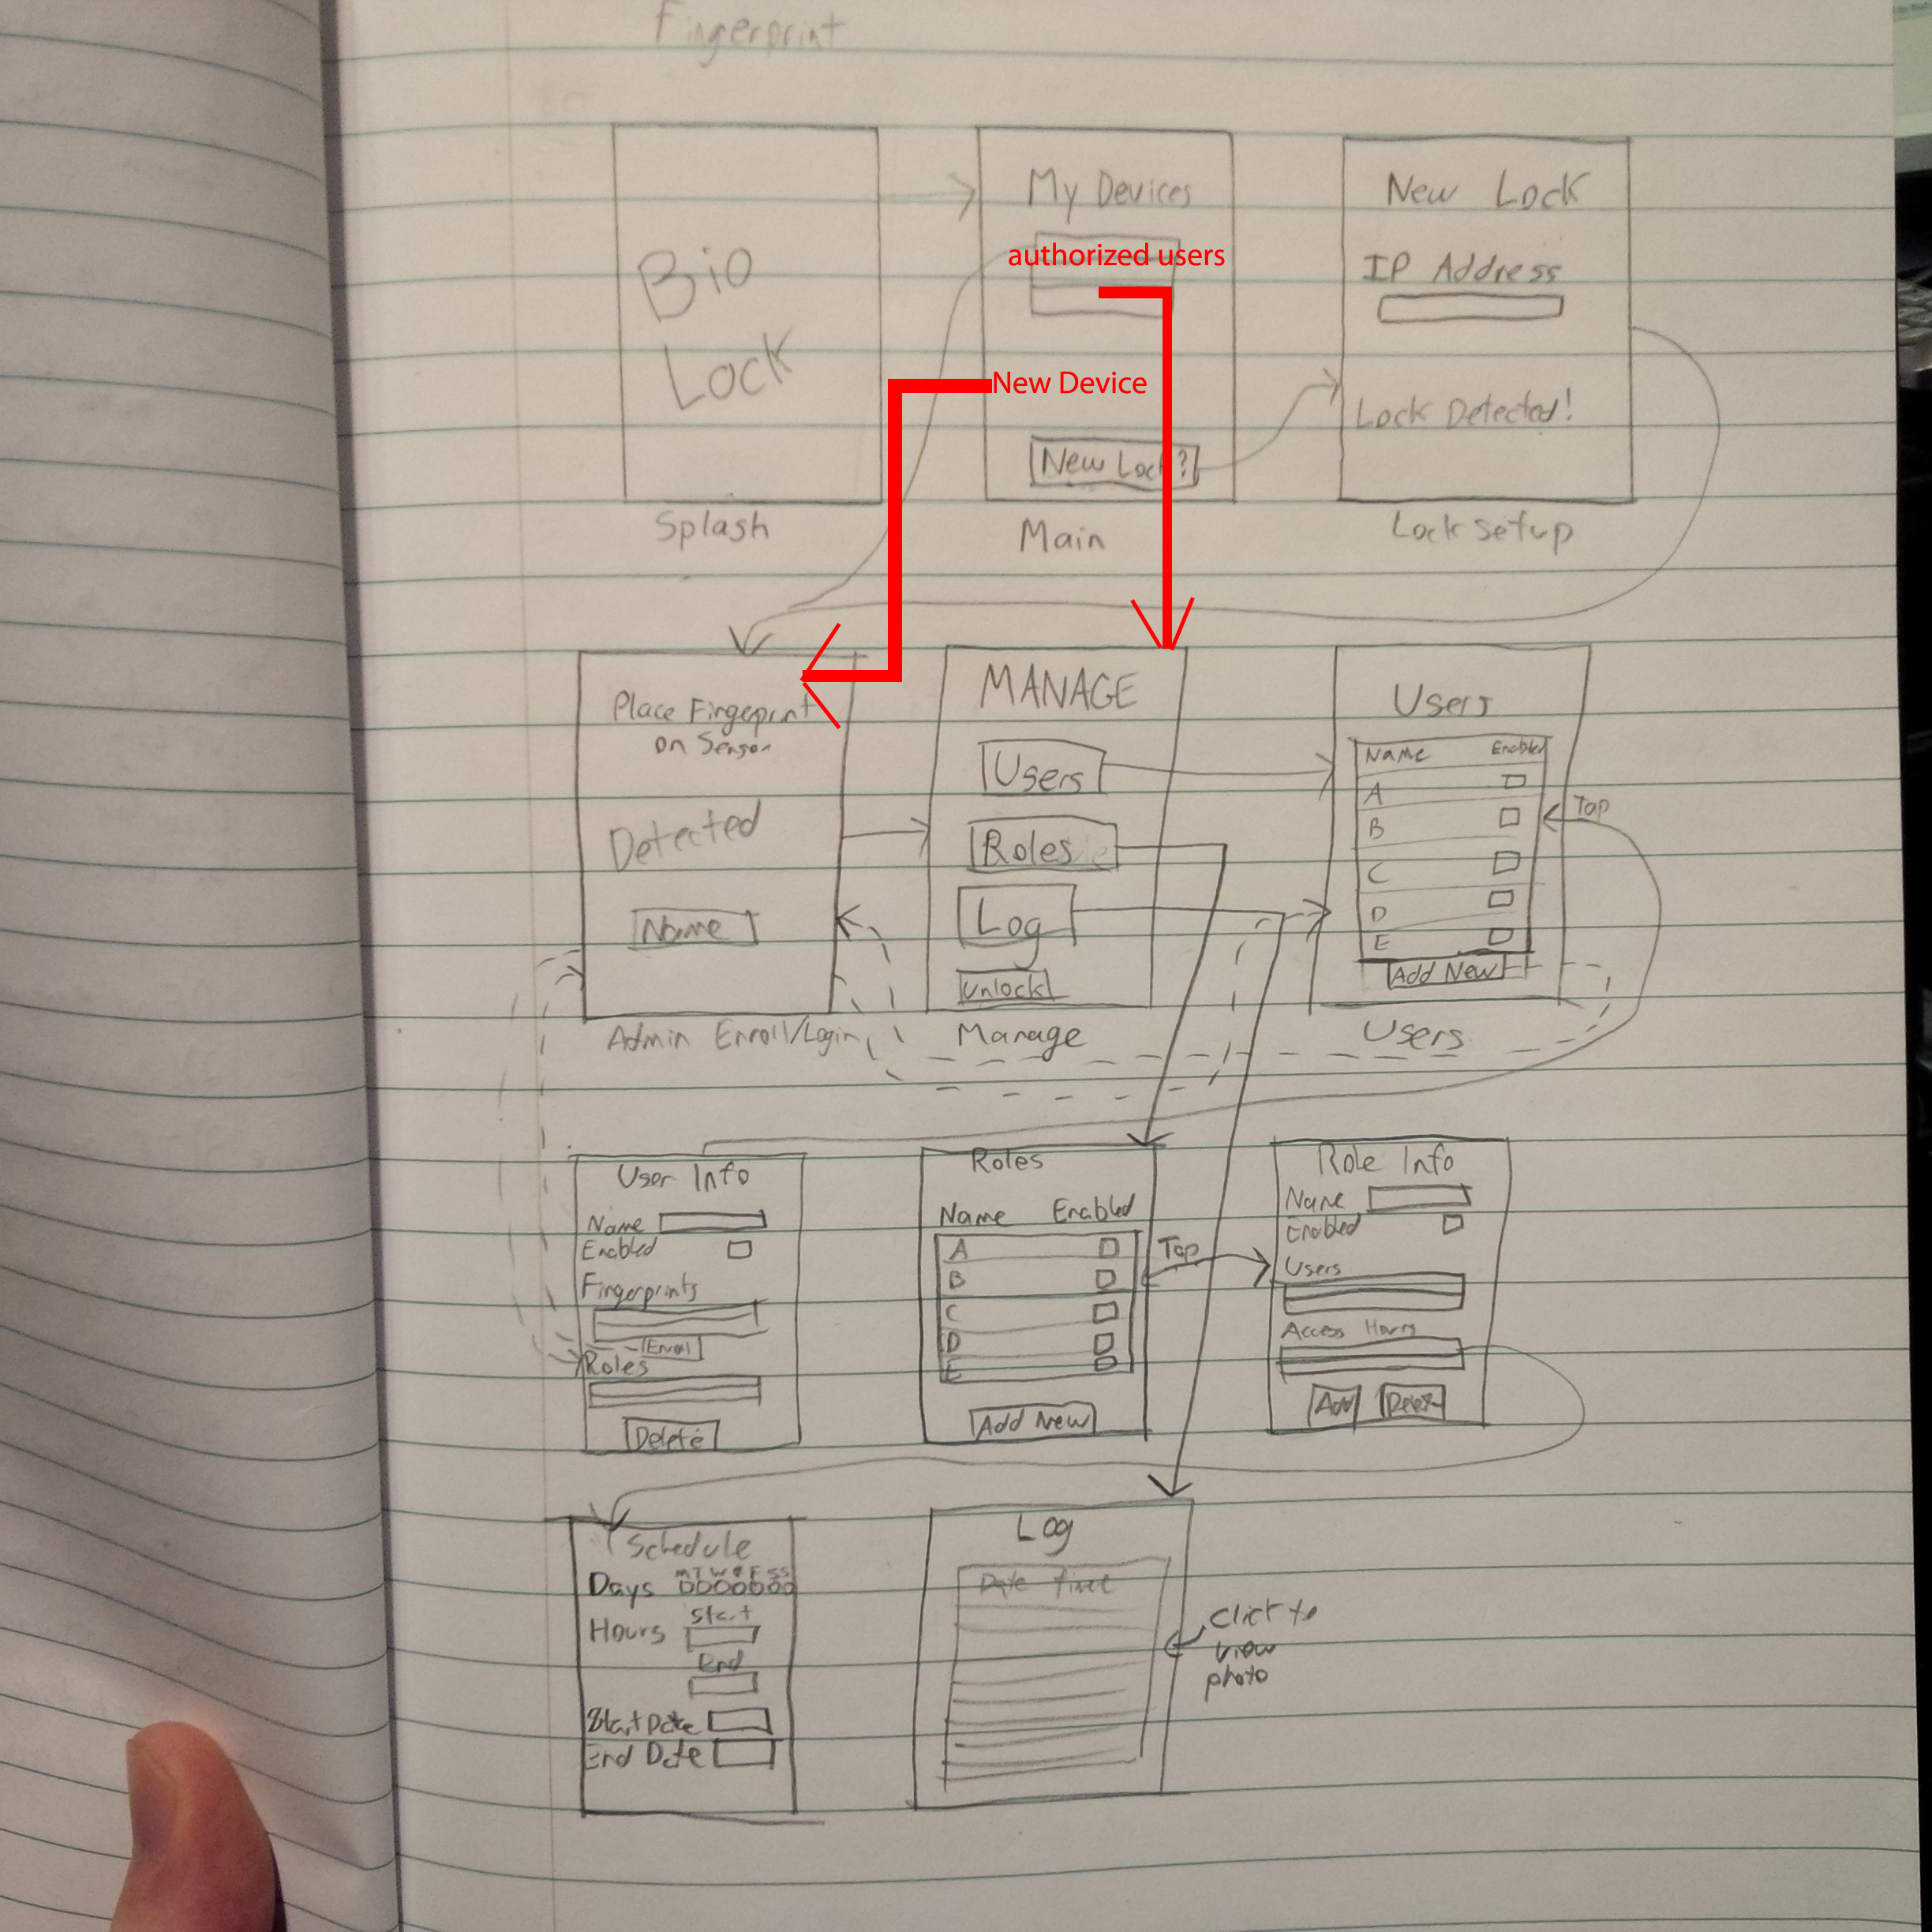 Fingerprint
Bio
Lock
Splash
My Devices
authorized users
New Device
New Lock?
Main
New Lock
IP Address
Lock Detected!
Lock setup
Place Fingeprint
on Sensor
Detected
Name
Admin Enroll/Login
MANAGE
Users
Roles
Log
Unlock
Manage
Users
Name Enabled
A
B
C
D
E
Add New
Tap
Users
User Info
Name
Enabled
Fingerprints
Enroll
Roles
Delete
Roles
Name Enabled
A
B
C
D
E
Add New
Tap
Role Info
Name
Enabled
Users
Access Hours
Add Delete
Schedule
Days M T W R F S S
Hours Start
End
Start Date
End Date
Log
Date Time
Click to
view
photo